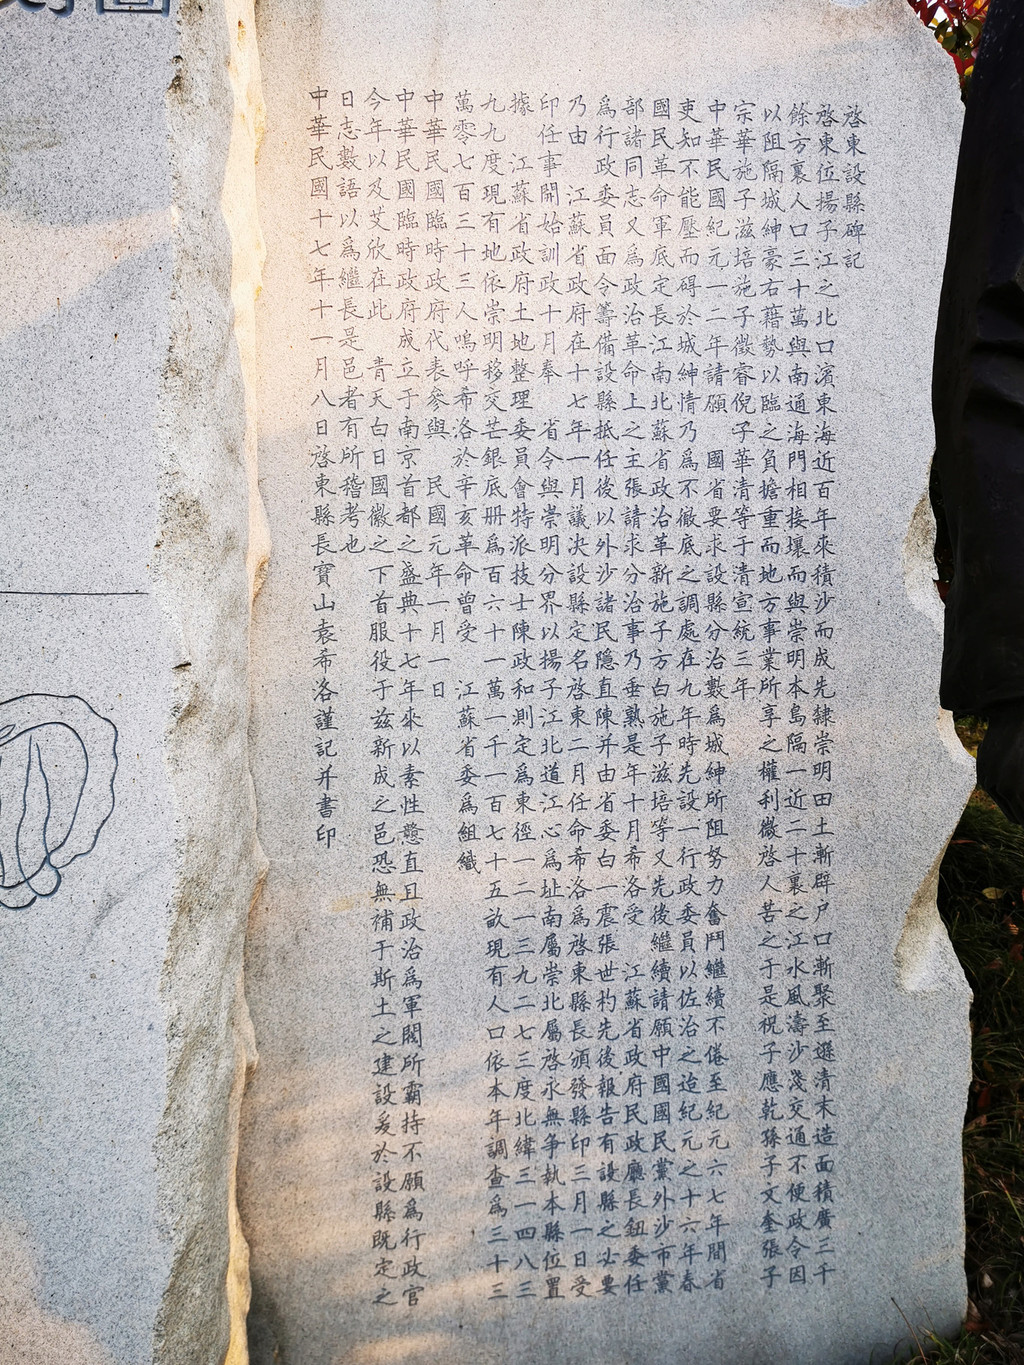 啓東設縣碑記
啓東位揚子江之北口濱東海近百年來積沙而成先隸崇明田土漸辟户口漸聚至遜清末造面積廣三千
餘方裏人口三十萬與南通海門相接壤而與崇明本島隔一近二十裏之江水風濤沙淺交通不便政令因
以阻隔城紳豪右藉勢以臨之負擔重而地方事業所享之權利微啓人苦之于是祝子應乾孫子文奎張子
宗華施子滋培施子徵睿倪子華清等于清宣統三年
中華民國紀元一二年請願 國省要求設縣分治數爲城紳所阻努力奮鬥繼續不倦至紀元六七年間省
吏知不能壓而碍於城紳情乃爲不徹底之調處在九年時先設一行政委員以佐治之迨紀元之十六年春
國民革命軍底定長江南北蘇省政治革新施子方白施子滋培等又先後繼續請願中國國民黨外沙市黨
部諸同志又爲政治革命上之主張請求分治事乃垂熟是年十月希洛受 江蘇省政府民政廳長鈕委任
爲行政委員面令籌備設縣抵任後以外沙諸民隱直陳并由省委白一震張世杓先後報告有設縣之必要
乃由 江蘇省政府在十七年一月議决設縣定名啓東二月任命希洛爲啓東縣長頒發縣印三月一日受
印任事開始訓政十月奉 省令與崇明分界以揚子江北道江心爲址南屬崇北屬啓永無争執本縣位置
據 江蘇省政府土地整理委員會特派技士陳政和測定爲東徑一二一三九二七三度北緯三一四八三
九九度現有地依崇明移交芒銀底册爲百六十一萬一千一百七十五畝現有人口依本年調查爲三十三
萬零七百三十三人嗚呼希洛於辛亥革命曾受 江蘇省委爲組織
中華民國臨時政府代表參與 民國元年一月一日
中華民國臨時政府成立于南京首都之盛典十七年來以素性戆直且政治爲軍閥所霸持不願爲行政官
今年以及艾欣在此 青天白日國徽之下首服役于兹新成之邑恐無補于斯土之建設爰於設縣既定之
日志數語以爲繼長是邑者有所稽考也
中華民國十七年十一月八日啓東縣長寶山袁希洛謹記并書印